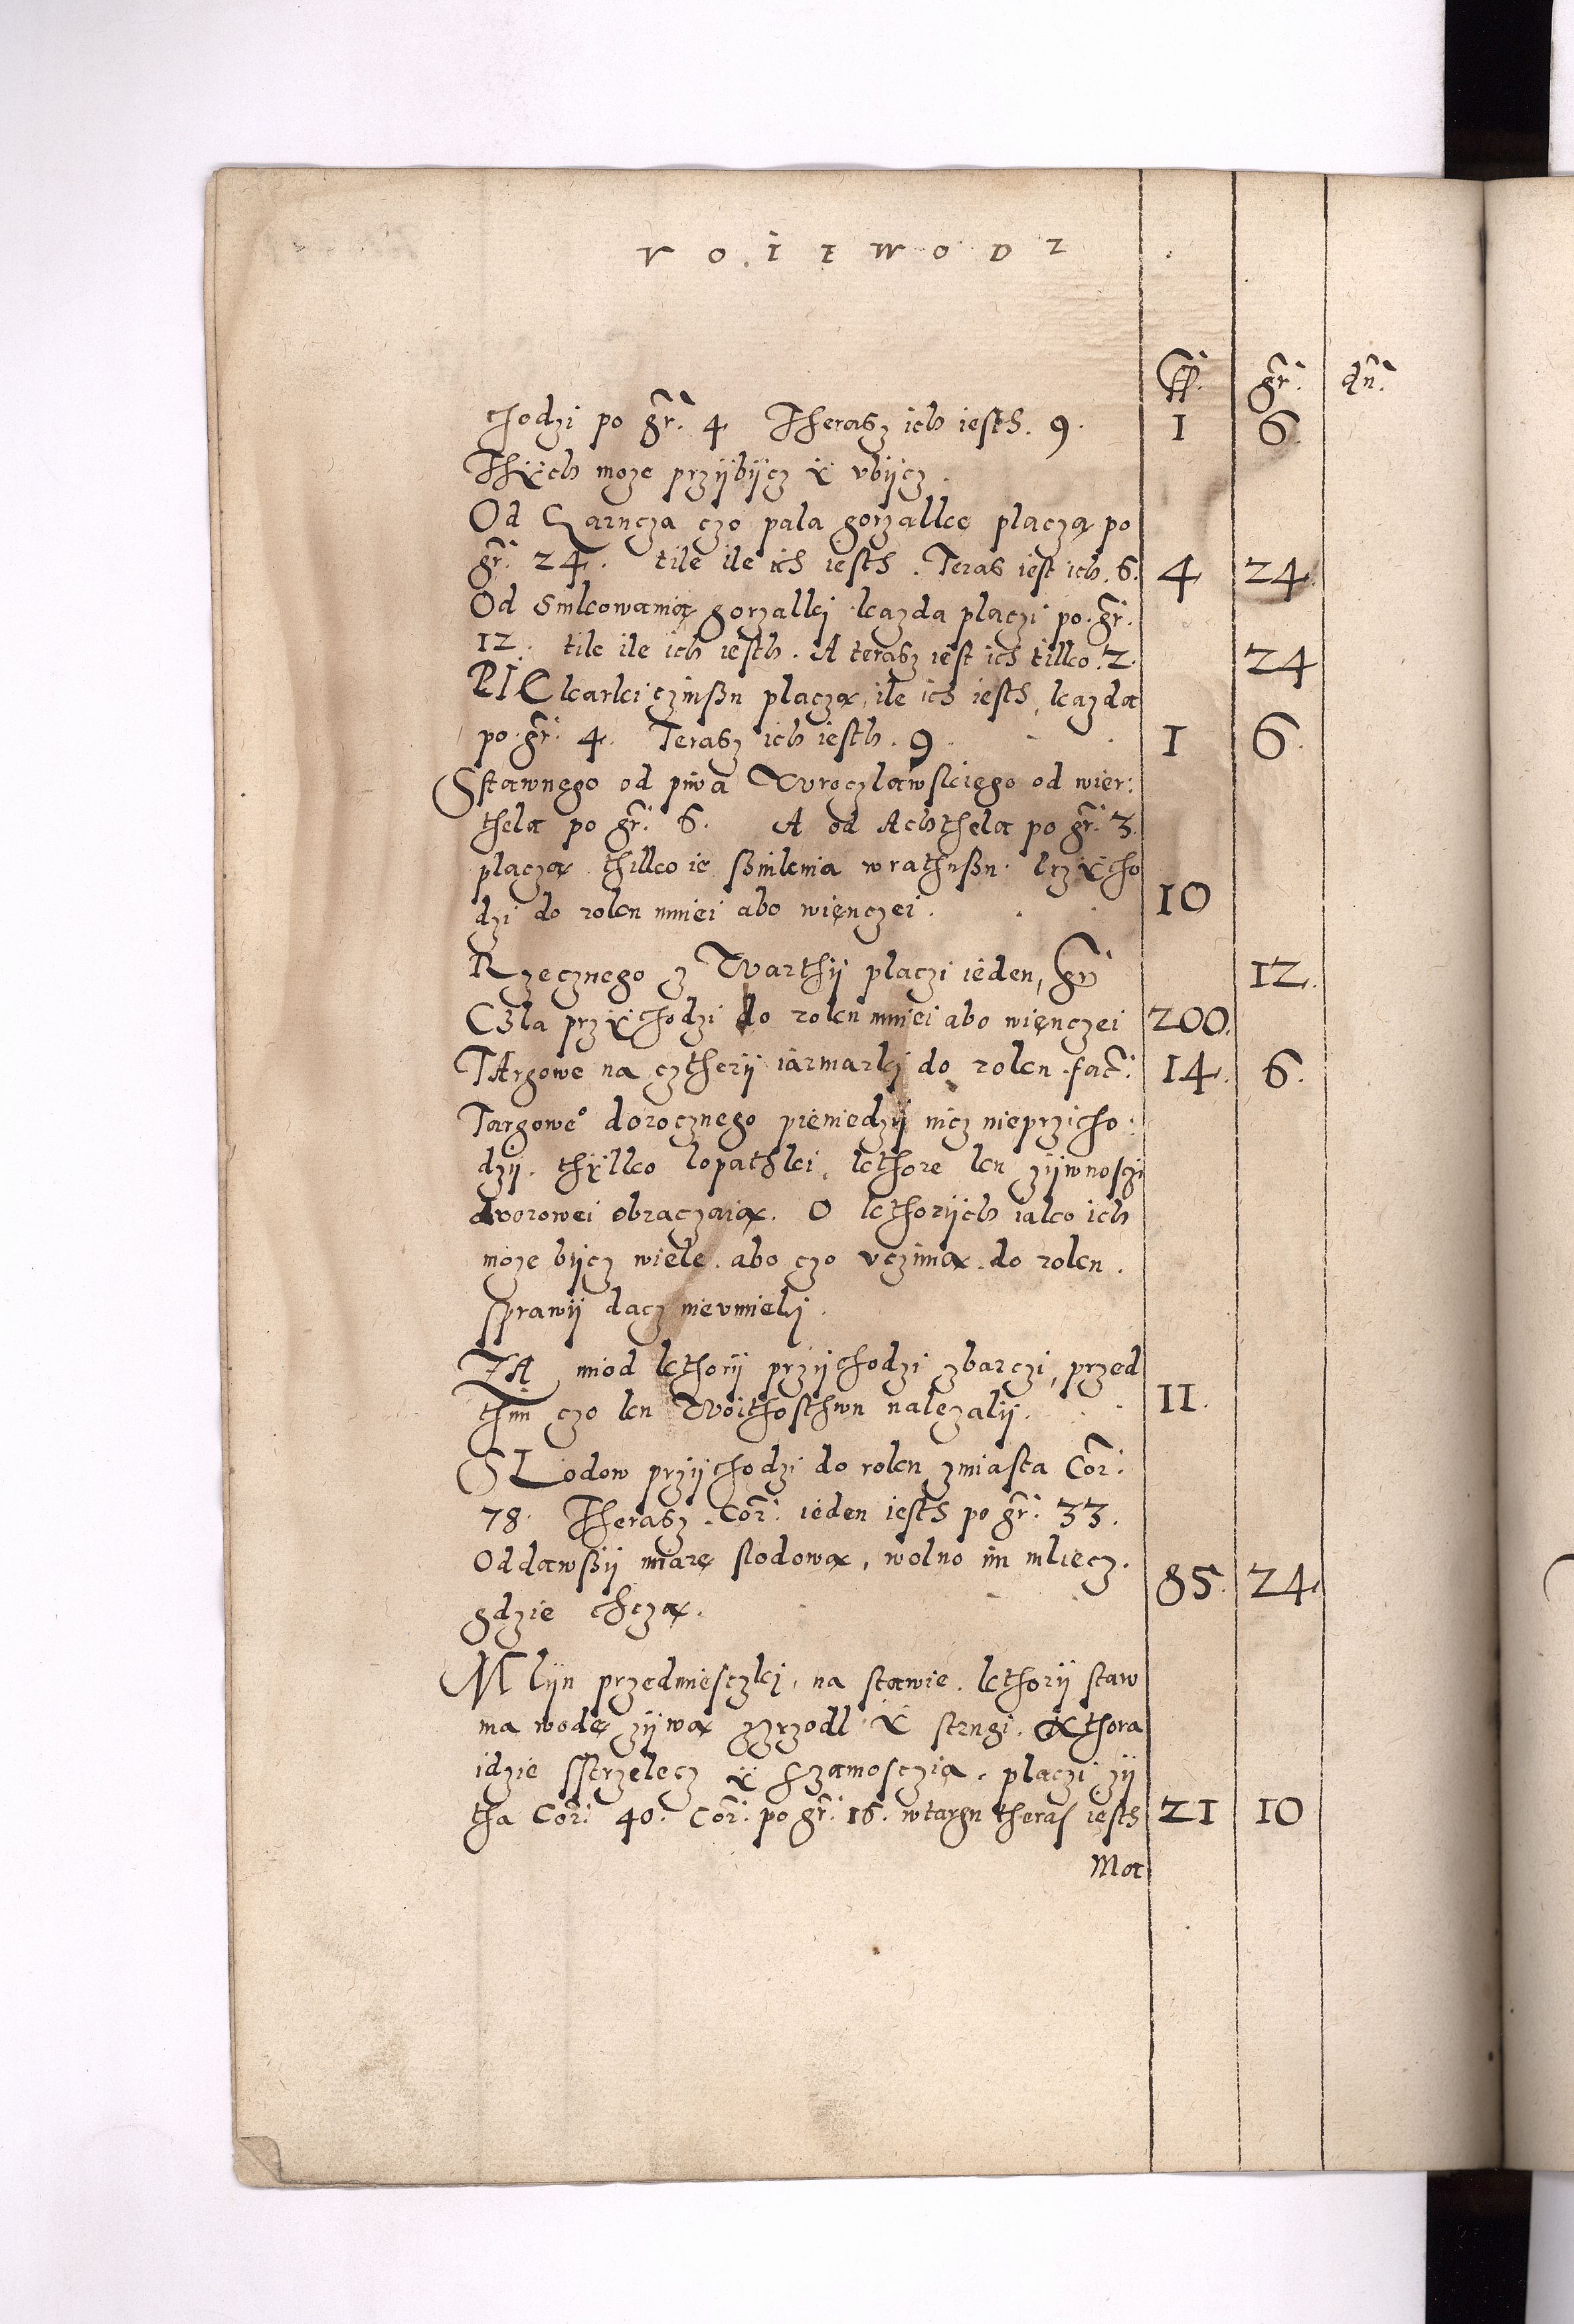 V O I E W O D Z
fl. gr. dn.
chodzi po gr. 4 Therasz ich iesth. 9. 1 6.
Thÿch moze przÿbÿcz ÿ vbÿcz.
Od Garncza czo pala gorzalke placzą po
gr. 24. tile ile ich iesth. Teras iest ich. 6. 4 24.
Od Sinkowania gorzalki kazda placzi po. gr.
12. tile ile ich iesth. A terasz iest ich tilko. 2. 24
PIekarki czinszu placzą, ile ich iesth, kazda
po. gr. 4. Terasz ich iesth. 9. 1 6.
Sstawnego od piwa Wroczlawskiego od wier:
thela po gr. 6. A od Achthela po gr. 3.
placzą thilko ie szinkuia w rathuszu. Przÿcho
dzi do roku mniei abo wienczei. 10
Rzecznego z Warthÿ placzi ieden, gr. 12.
Czla przÿchodzi do roku mniei abo wienczei 200.
TArgowe na cztherÿ iarmarki do roku. fac. 14. 6.
Targoweo dorocznego pieniedzÿ nicz nieprzicho:
dzÿ. thÿlko lopathki, kthore ku zÿwnosczi
dworowei obraczaią. O kthorÿch iako ich
moze bÿcz wiele. abo czo vczinią. do roku.
sprawÿ dacz nieumieli.
ZA miod kthorÿ przÿchodzi zbarczi, przed
thim czo ku Woithosthwu nalezalÿ. 11.
SLodow przÿchodzi do roku zmiasta Cor.
78. Therasz. Cor. ieden iesth po gr. 33.
Oddawszÿ miarę slodową, wolno im mliecz.
gdzie chczą. 85. 24.
MLÿn przedmiesczki, na stawie. kthorÿ staw
ma wodę zÿwą zzrzodl ÿ strugi. kthora
idzie sstrzelecz ÿ szamosczia. placzi zÿ
tha Cor. 40. Cor. po gr. 16. wtargu theras iesth 21 10
Ma